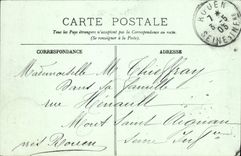 CARTE POSTALE
Tous les pays étrangers n'acceptent pas la Correspondance au recto.
(Se renseigner à la Poste)
CORRESPONDANCE
ADRESSE
ROUEN
SEINE INF
Mademoiselle M
Dans sa famille
rue Hénault
Mont Saint Aignan
près Rouen
Seine Infre